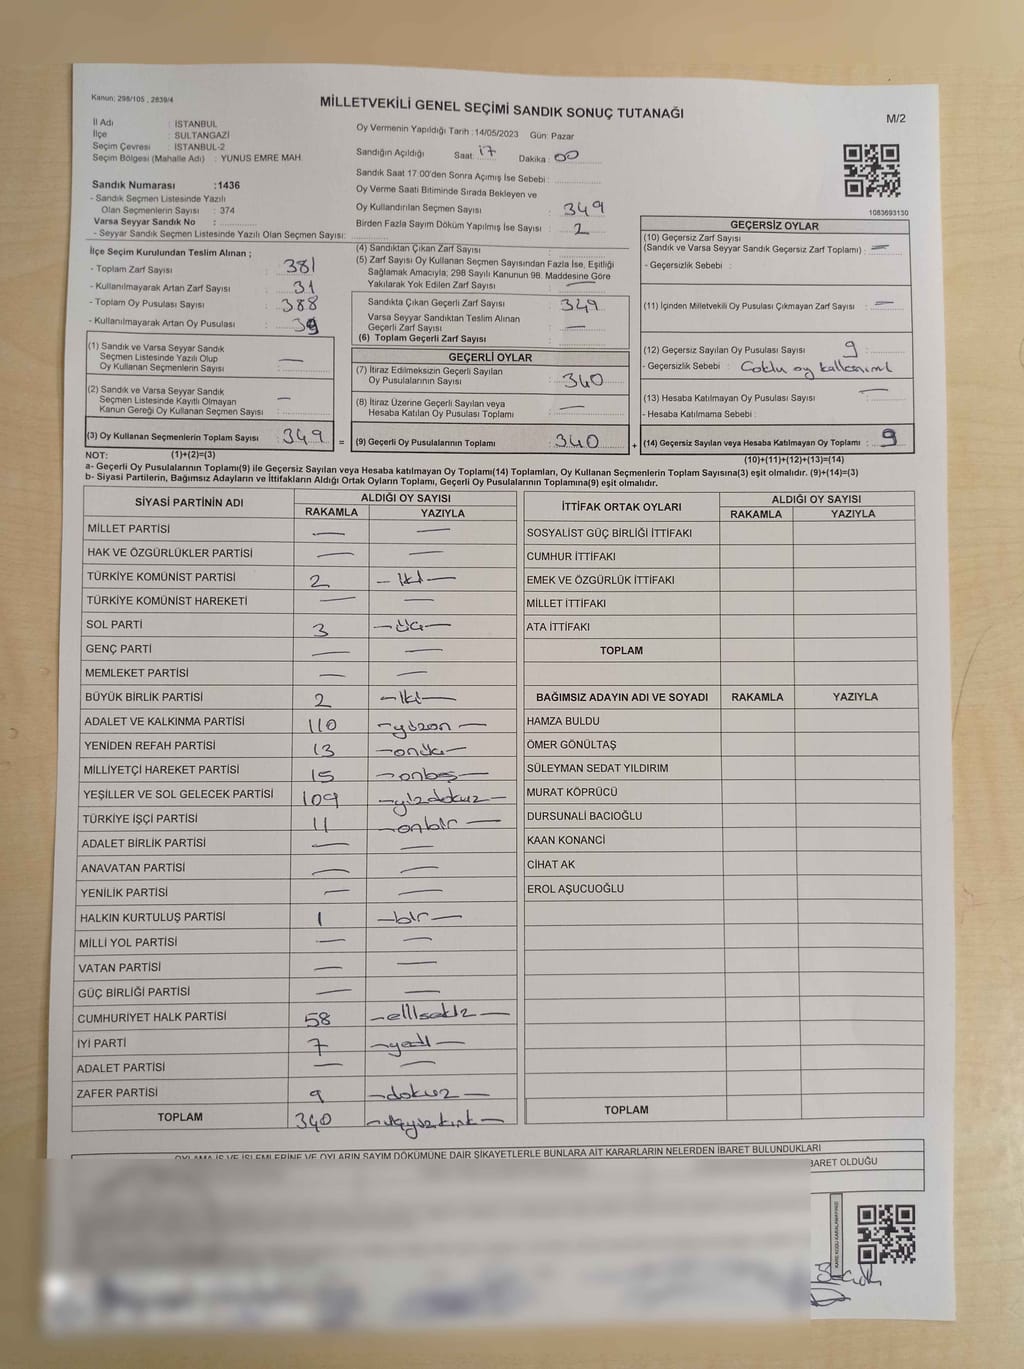 Kanun; 298/105 , 2839/4
MİLLETVEKİLİ GENEL SEÇİMİ SANDIK SONUÇ TUTANAĞI
M/2
İl Adı : İSTANBUL
İlçe : SULTANGAZİ
Seçim Çevresi : İSTANBUL-2
Seçim Bölgesi (Mahalle Adı) : YUNUS EMRE MAH.
Sandık Numarası :1436
- Sandık Seçmen Listesinde Yazılı
Olan Seçmenlerin Sayısı : 374
Varsa Seyyar Sandık No :
- Seyyar Sandık Seçmen Listesinde Yazılı Olan Seçmen Sayısı:
Oy Vermenin Yapıldığı Tarih :14/05/2023 Gün: Pazar
Sandığın Açıldığı Saat: 17 Dakika : 00
Sandık Saat 17:00'den Sonra Açımış İse Sebebi :
Oy Verme Saati Bitiminde Sırada Bekleyen ve
Oy Kullandırılan Seçmen Sayısı : 349
Birden Fazla Sayım Döküm Yapılmış İse Sayısı : 2
1083693130
İlçe Seçim Kurulundan Teslim Alınan ;
- Toplam Zarf Sayısı : 381
- Kullanılmayarak Artan Zarf Sayısı : 31
- Toplam Oy Pusulası Sayısı : 388
- Kullanılmayarak Artan Oy Pusulası : 39
(1) Sandık ve Varsa Seyyar Sandık
Seçmen Listesinde Yazılı Olup
Oy Kullanan Seçmenlerin Sayısı : —
(2) Sandık ve Varsa Seyyar Sandık
Seçmen Listesinde Kayıtlı Olmayan
Kanun Gereği Oy Kullanan Seçmen Sayısı : —
(3) Oy Kullanan Seçmenlerin Toplam Sayısı : 349 =
(4) Sandıktan Çıkan Zarf Sayısı :
(5) Zarf Sayısı Oy Kullanan Seçmen Sayısından Fazla İse, Eşitliği
Sağlamak Amacıyla; 298 Sayılı Kanunun 98. Maddesine Göre
Yakılarak Yok Edilen Zarf Sayısı : —
Sandıkta Çıkan Geçerli Zarf Sayısı : 349
Varsa Seyyar Sandıktan Teslim Alınan
Geçerli Zarf Sayısı : —
(6) Toplam Geçerli Zarf Sayısı :
GEÇERLİ OYLAR
(7) İtiraz Edilmeksizin Geçerli Sayılan
Oy Pusulalarının Sayısı : 340
(8) İtiraz Üzerine Geçerli Sayılan veya
Hesaba Katılan Oy Pusulası Toplamı : —
(9) Geçerli Oy Pusulalarının Toplamı : 340 +
GEÇERSİZ OYLAR
(10) Geçersiz Zarf Sayısı
(Sandık ve Varsa Seyyar Sandık Geçersiz Zarf Toplamı) : —
- Geçersizlik Sebebi :
(11) İçinden Milletvekili Oy Pusulası Çıkmayan Zarf Sayısı : —
(12) Geçersiz Sayılan Oy Pusulası Sayısı : 9
- Geçersizlik Sebebi : Çoklu oy kullanımı
(13) Hesaba Katılmayan Oy Pusulası Sayısı : —
- Hesaba Katılmama Sebebi :
(14) Geçersiz Sayılan veya Hesaba Katılmayan Oy Toplamı : 9
NOT: (1)+(2)=(3) (10)+(11)+(12)+(13)=(14)
a- Geçerli Oy Pusulalarının Toplamı(9) ile Geçersiz Sayılan veya Hesaba katılmayan Oy Toplamı(14) Toplamları, Oy Kullanan Seçmenlerin Toplam Sayısına(3) eşit olmalıdır. (9)+(14)=(3)
b- Siyasi Partilerin, Bağımsız Adayların ve İttifakların Aldığı Ortak Oyların Toplamı, Geçerli Oy Pusulalarının Toplamına(9) eşit olmalıdır.
SİYASİ PARTİNİN ADI ALDIĞI OY SAYISI
RAKAMLA YAZIYLA
MİLLET PARTİSİ — —
HAK VE ÖZGÜRLÜKLER PARTİSİ — —
TÜRKİYE KOMÜNİST PARTİSİ 2 — İki —
TÜRKİYE KOMÜNİST HAREKETİ — —
SOL PARTİ 3 — üç —
GENÇ PARTİ — —
MEMLEKET PARTİSİ — —
BÜYÜK BİRLİK PARTİSİ 2 — İki —
ADALET VE KALKINMA PARTİSİ 110 — yüzon —
YENİDEN REFAH PARTİSİ 13 — onüç —
MİLLİYETÇİ HAREKET PARTİSİ 15 — onbeş —
YEŞİLLER VE SOL GELECEK PARTİSİ 109 — yüzdokuz —
TÜRKİYE İŞÇİ PARTİSİ 11 — onbir —
ADALET BİRLİK PARTİSİ — —
ANAVATAN PARTİSİ — —
YENİLİK PARTİSİ — —
HALKIN KURTULUŞ PARTİSİ 1 — bir —
MİLLİ YOL PARTİSİ — —
VATAN PARTİSİ — —
GÜÇ BİRLİĞİ PARTİSİ — —
CUMHURİYET HALK PARTİSİ 58 — ellisekiz —
İYİ PARTİ 7 — yedi —
ADALET PARTİSİ — —
ZAFER PARTİSİ 9 — dokuz —
TOPLAM 340 — üçyüzkırk —
İTTİFAK ORTAK OYLARI ALDIĞI OY SAYISI
RAKAMLA YAZIYLA
SOSYALİST GÜÇ BİRLİĞİ İTTİFAKI
CUMHUR İTTİFAKI
EMEK VE ÖZGÜRLÜK İTTİFAKI
MİLLET İTTİFAKI
ATA İTTİFAKI
TOPLAM
BAĞIMSIZ ADAYIN ADI VE SOYADI RAKAMLA YAZIYLA
HAMZA BULDU
ÖMER GÖNÜLTAŞ
SÜLEYMAN SEDAT YILDIRIM
MURAT KÖPRÜCÜ
DURSUNALİ BACIOĞLU
KAAN KONANCİ
CİHAT AK
EROL AŞUCUOĞLU
TOPLAM
OYLAMA İŞ VE İŞLEMLERİNE VE OYLARIN SAYIM DÖKÜMÜNE DAİR ŞİKAYETLERLE BUNLARA AİT KARARLARIN NELERDEN İBARET BULUNDUKLARI
BARET OLDUĞU